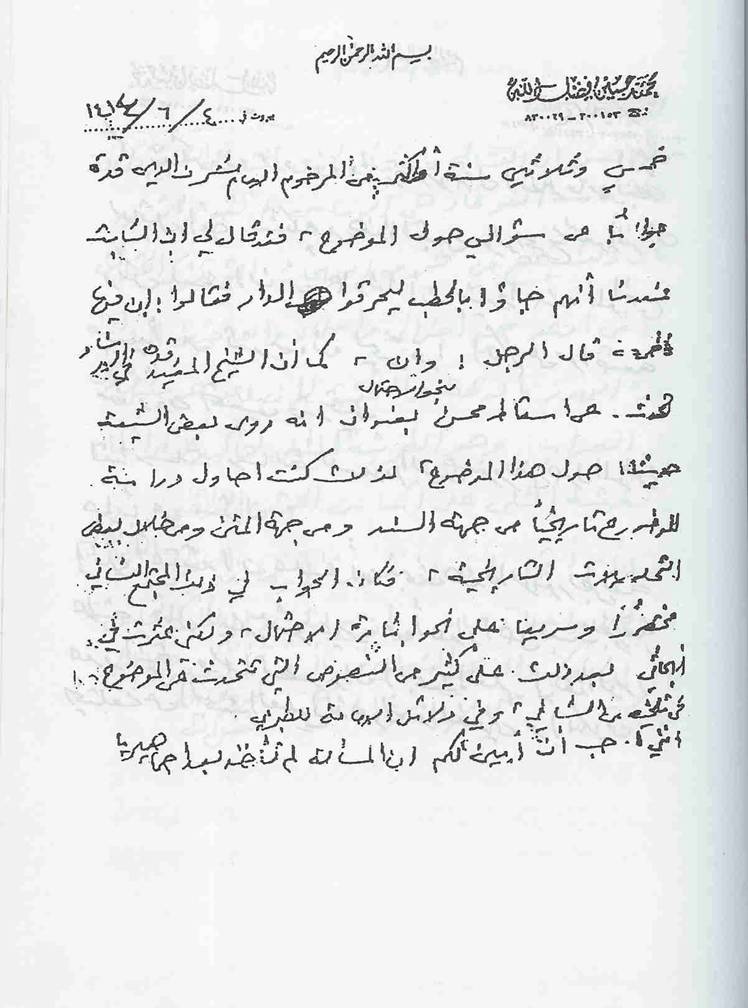 بسم الله الرحمن الرحيم
محمد حسين فضل الله
٨٣٠٠٢٩ - ٣٠٠١٥٣
بيروت في ٤ / ٦ / ١٤١٤
خمس وثلاثين سنة أو أكثر من المرحوم الإمام شرف الدين قده
جواباً عن سؤالي حول الموضوع، فقد قال لي ان الثابت
عندنا أنهم جاؤا بالحطب ليحرقوا الدار فقالوا: إن فيها
فاطمة قال الرجل: وان، كما أن الشيخ المفيد قده في الارشاد
تحدث عن اسقاط محسن بنحو الاحتمال بعنوان انه روى بعض الشيعة
حديثاً حول هذا الموضوع، لذلك كنت احاول دراسة
الموضوع تاريخياً من جهة السند ومن جهة المتن ومن خلال بعض
التحليلات التاريخية، فكان الجواب في ذلك المجتمع النسائي
مختصراً وسريعاً على نحو إثارة الاحتمال، ولكني عثرت في
أبحاثي بعد ذلك على كثير من النصوص التي تتحدث عن الموضوع
في تلخيص الشافي، وفي دلائل الامامة للطبري.
انني أحب أن أبين لكم ان المسألة لم تأخذ بعداً جماهيرياً